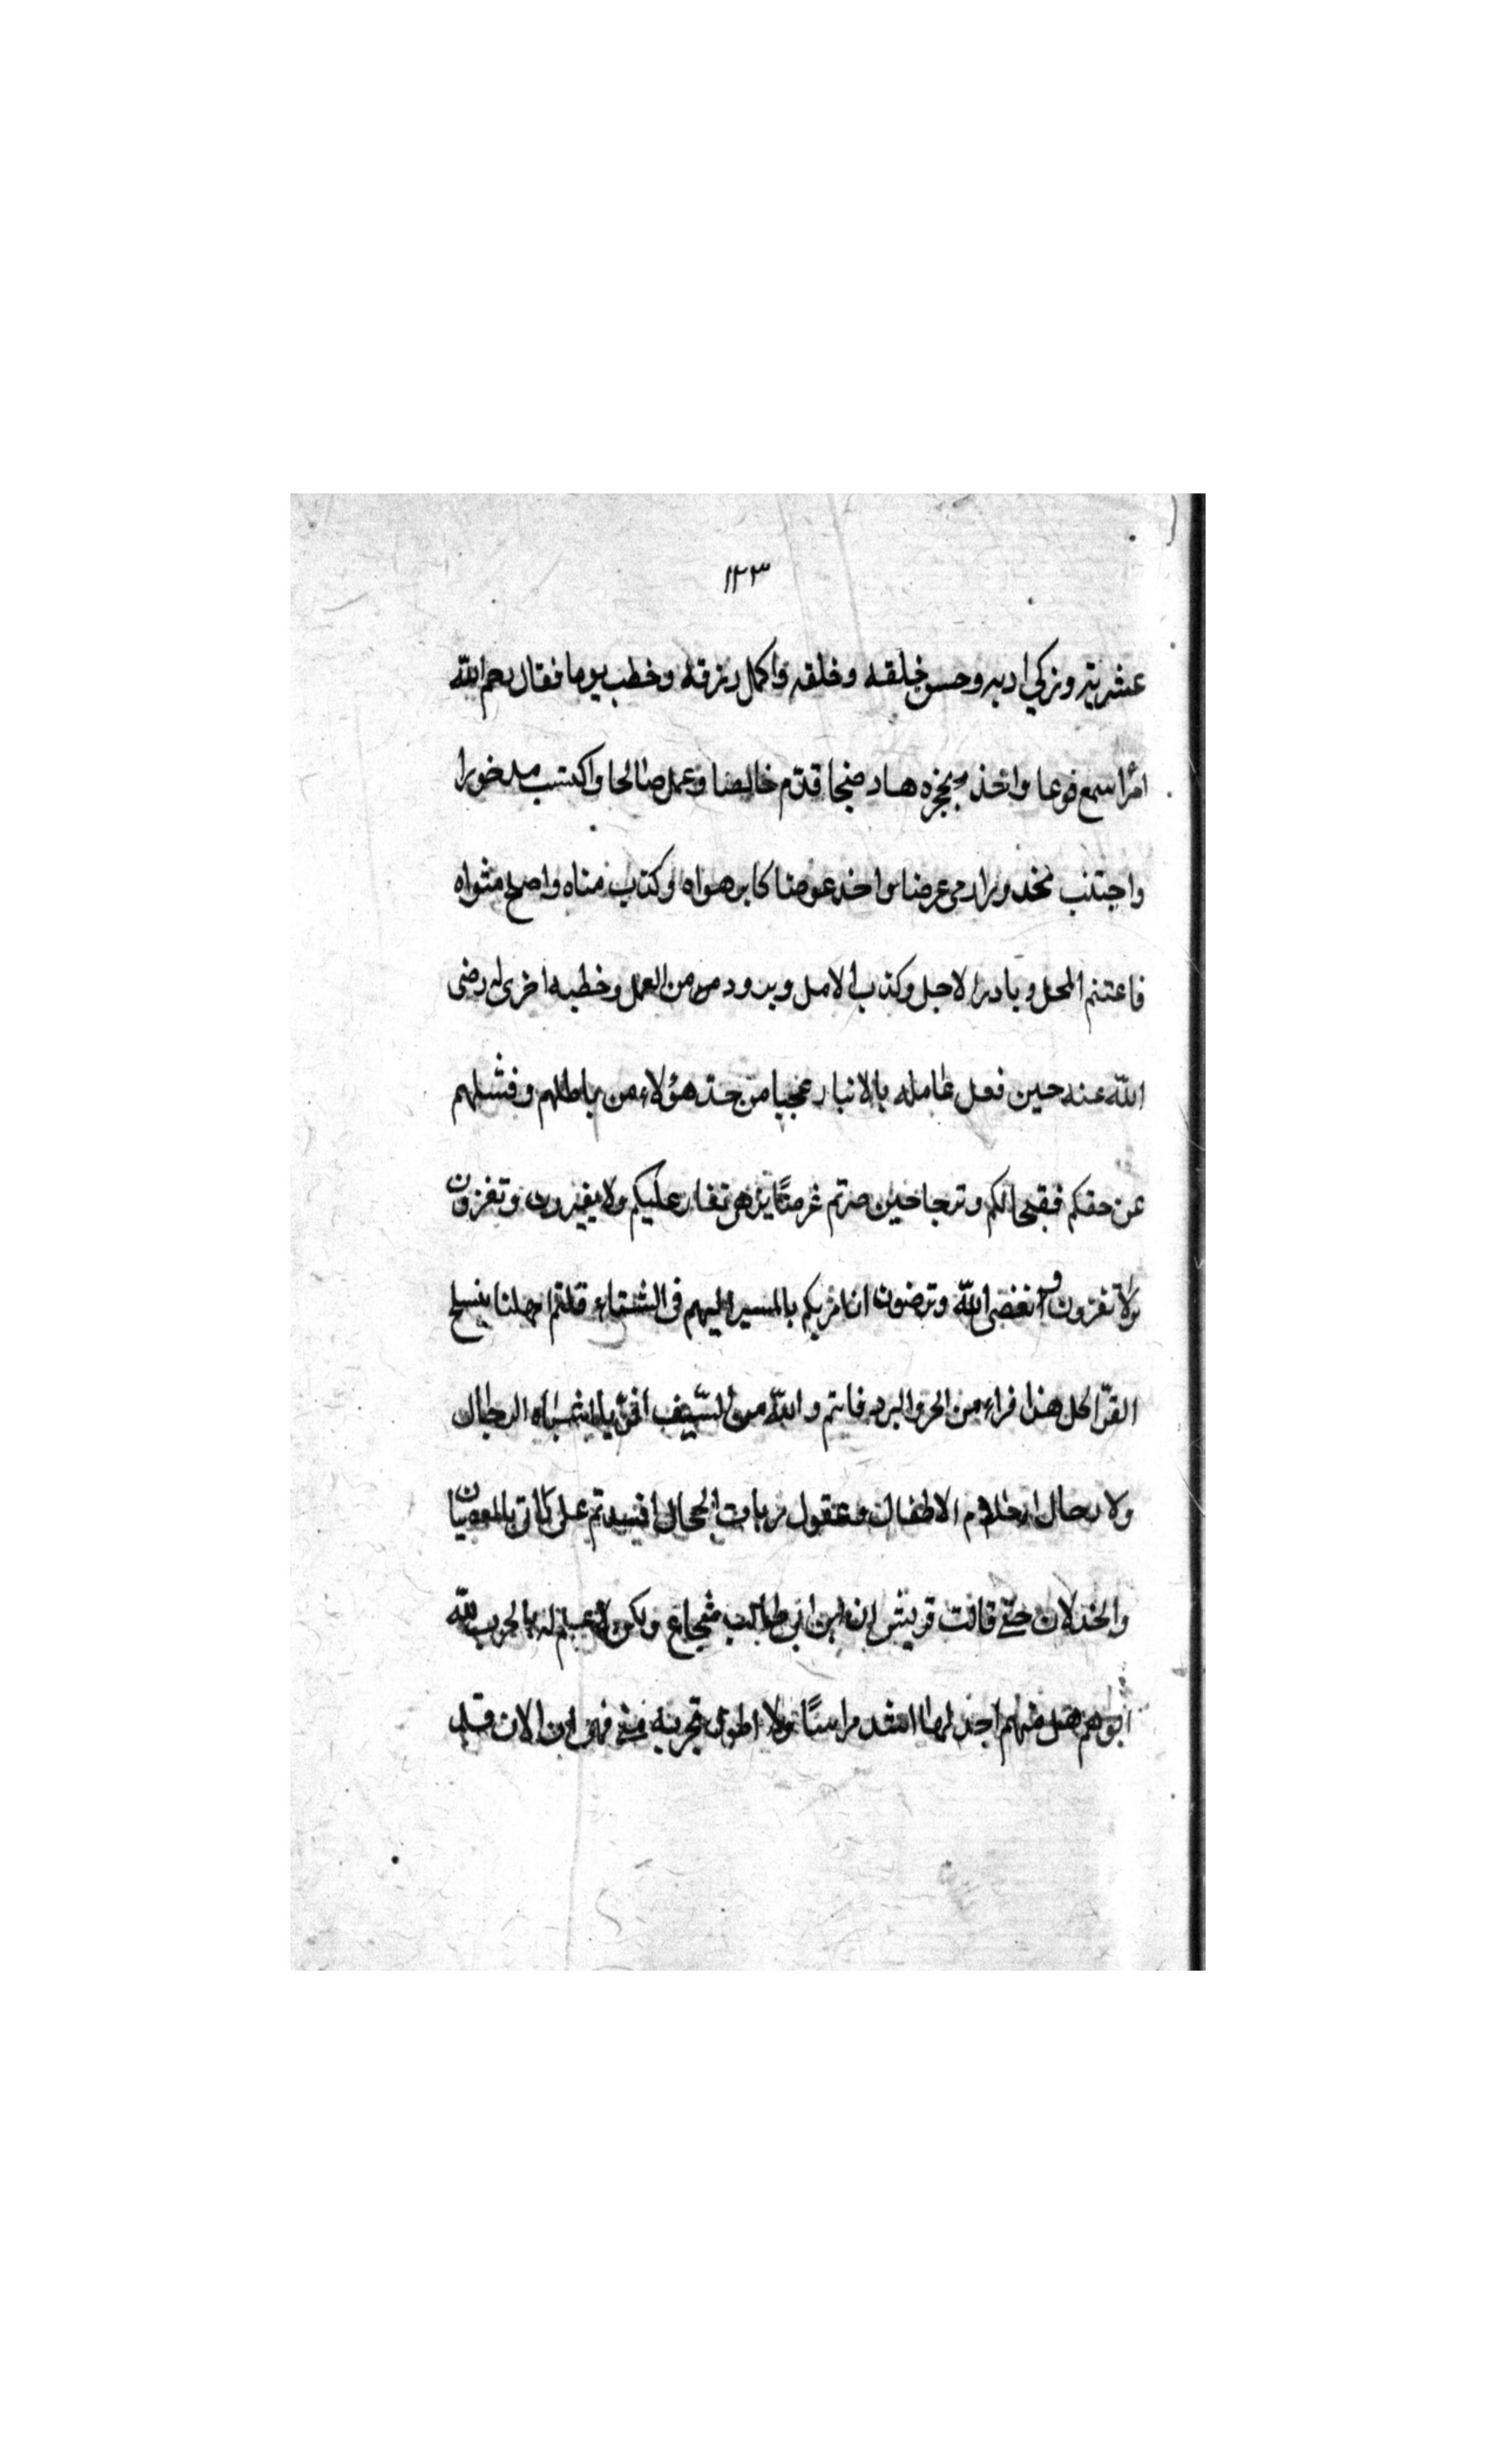 ١٢٣
عشريته وزكي ادبه وحسن خلقه وخلقه واكمل رزقه وخطب يوما فقال رحم الله
امرأ سمع فوعا واخذ بحجزه هاد فنجا قدم خالصا وعمل صالحا واكتسب مذخورا
واجتنب محذورا رمى عرضا واخذ عوضا كابر هواه وكذب مناه واصلح مثواه
فاغتنم المحل وبادر الاجل وكذب الامل وتزود من العمل وخطبه اخرى له رضى
الله عنه حين فعل عامله بالانبار عجبا من جد هؤلاء من باطلهم وفشلهم
عن حقكم فقبحا لكم وترحا حين صرتم غرضا يرمى تغار عليكم ولا تغيرون وتغزون
ولا تغزون وانعصى الله وترضون ان امرتكم بالمسير اليهم في الشتاء قلتم امهلنا ينسلخ
القر اكل هذا فراء من الحر والبرد فانتم والله من السيف افر يا اشباه الرجال
ولا رجال احلام الاطفال وعقول ربات الحجال افسدتم على راى بالعصيان
والخذلان حتى قالت قريش ان ابن ابي طالب شجاع ولكن لا علم له بالحرب لله
ابوهم هل منهم احد لها اشد مراسا ولا اطول تجربة منى فها انا الان قد